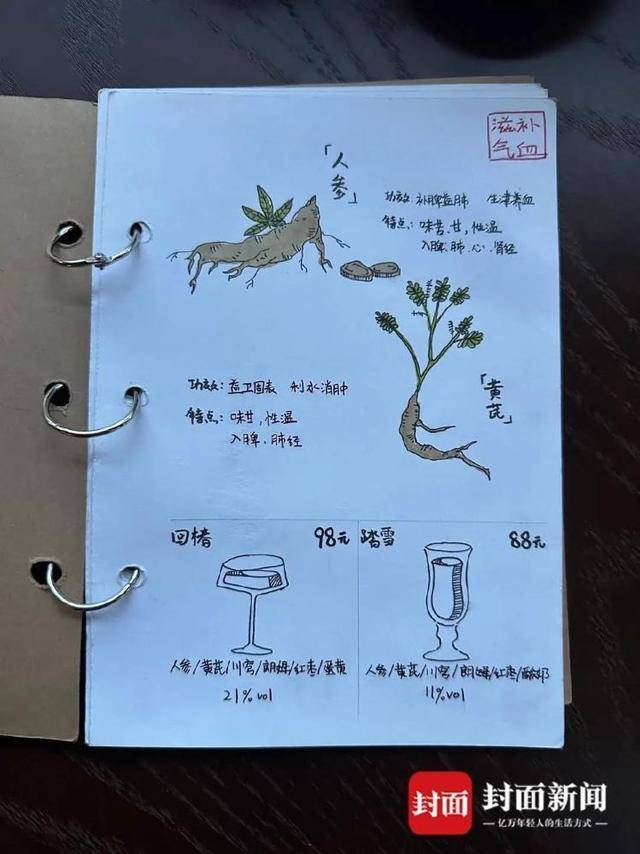 滋补
气血
「人参」
功效：补脾益肺 生津养血
特点：味苦、甘，性温
入脾、肺、心、肾经
功效：益卫固表 利水消肿
特点：味甘，性温
入脾、肺经
「黄芪」
回椿 98元
人参/黄芪/川芎/朗姆/红枣/蛋黄
21%vol
踏雪 88元
人参/黄芪/川芎/朗姆/红枣/酸奶
11%vol
封面 封面新闻
亿万年轻人的生活方式